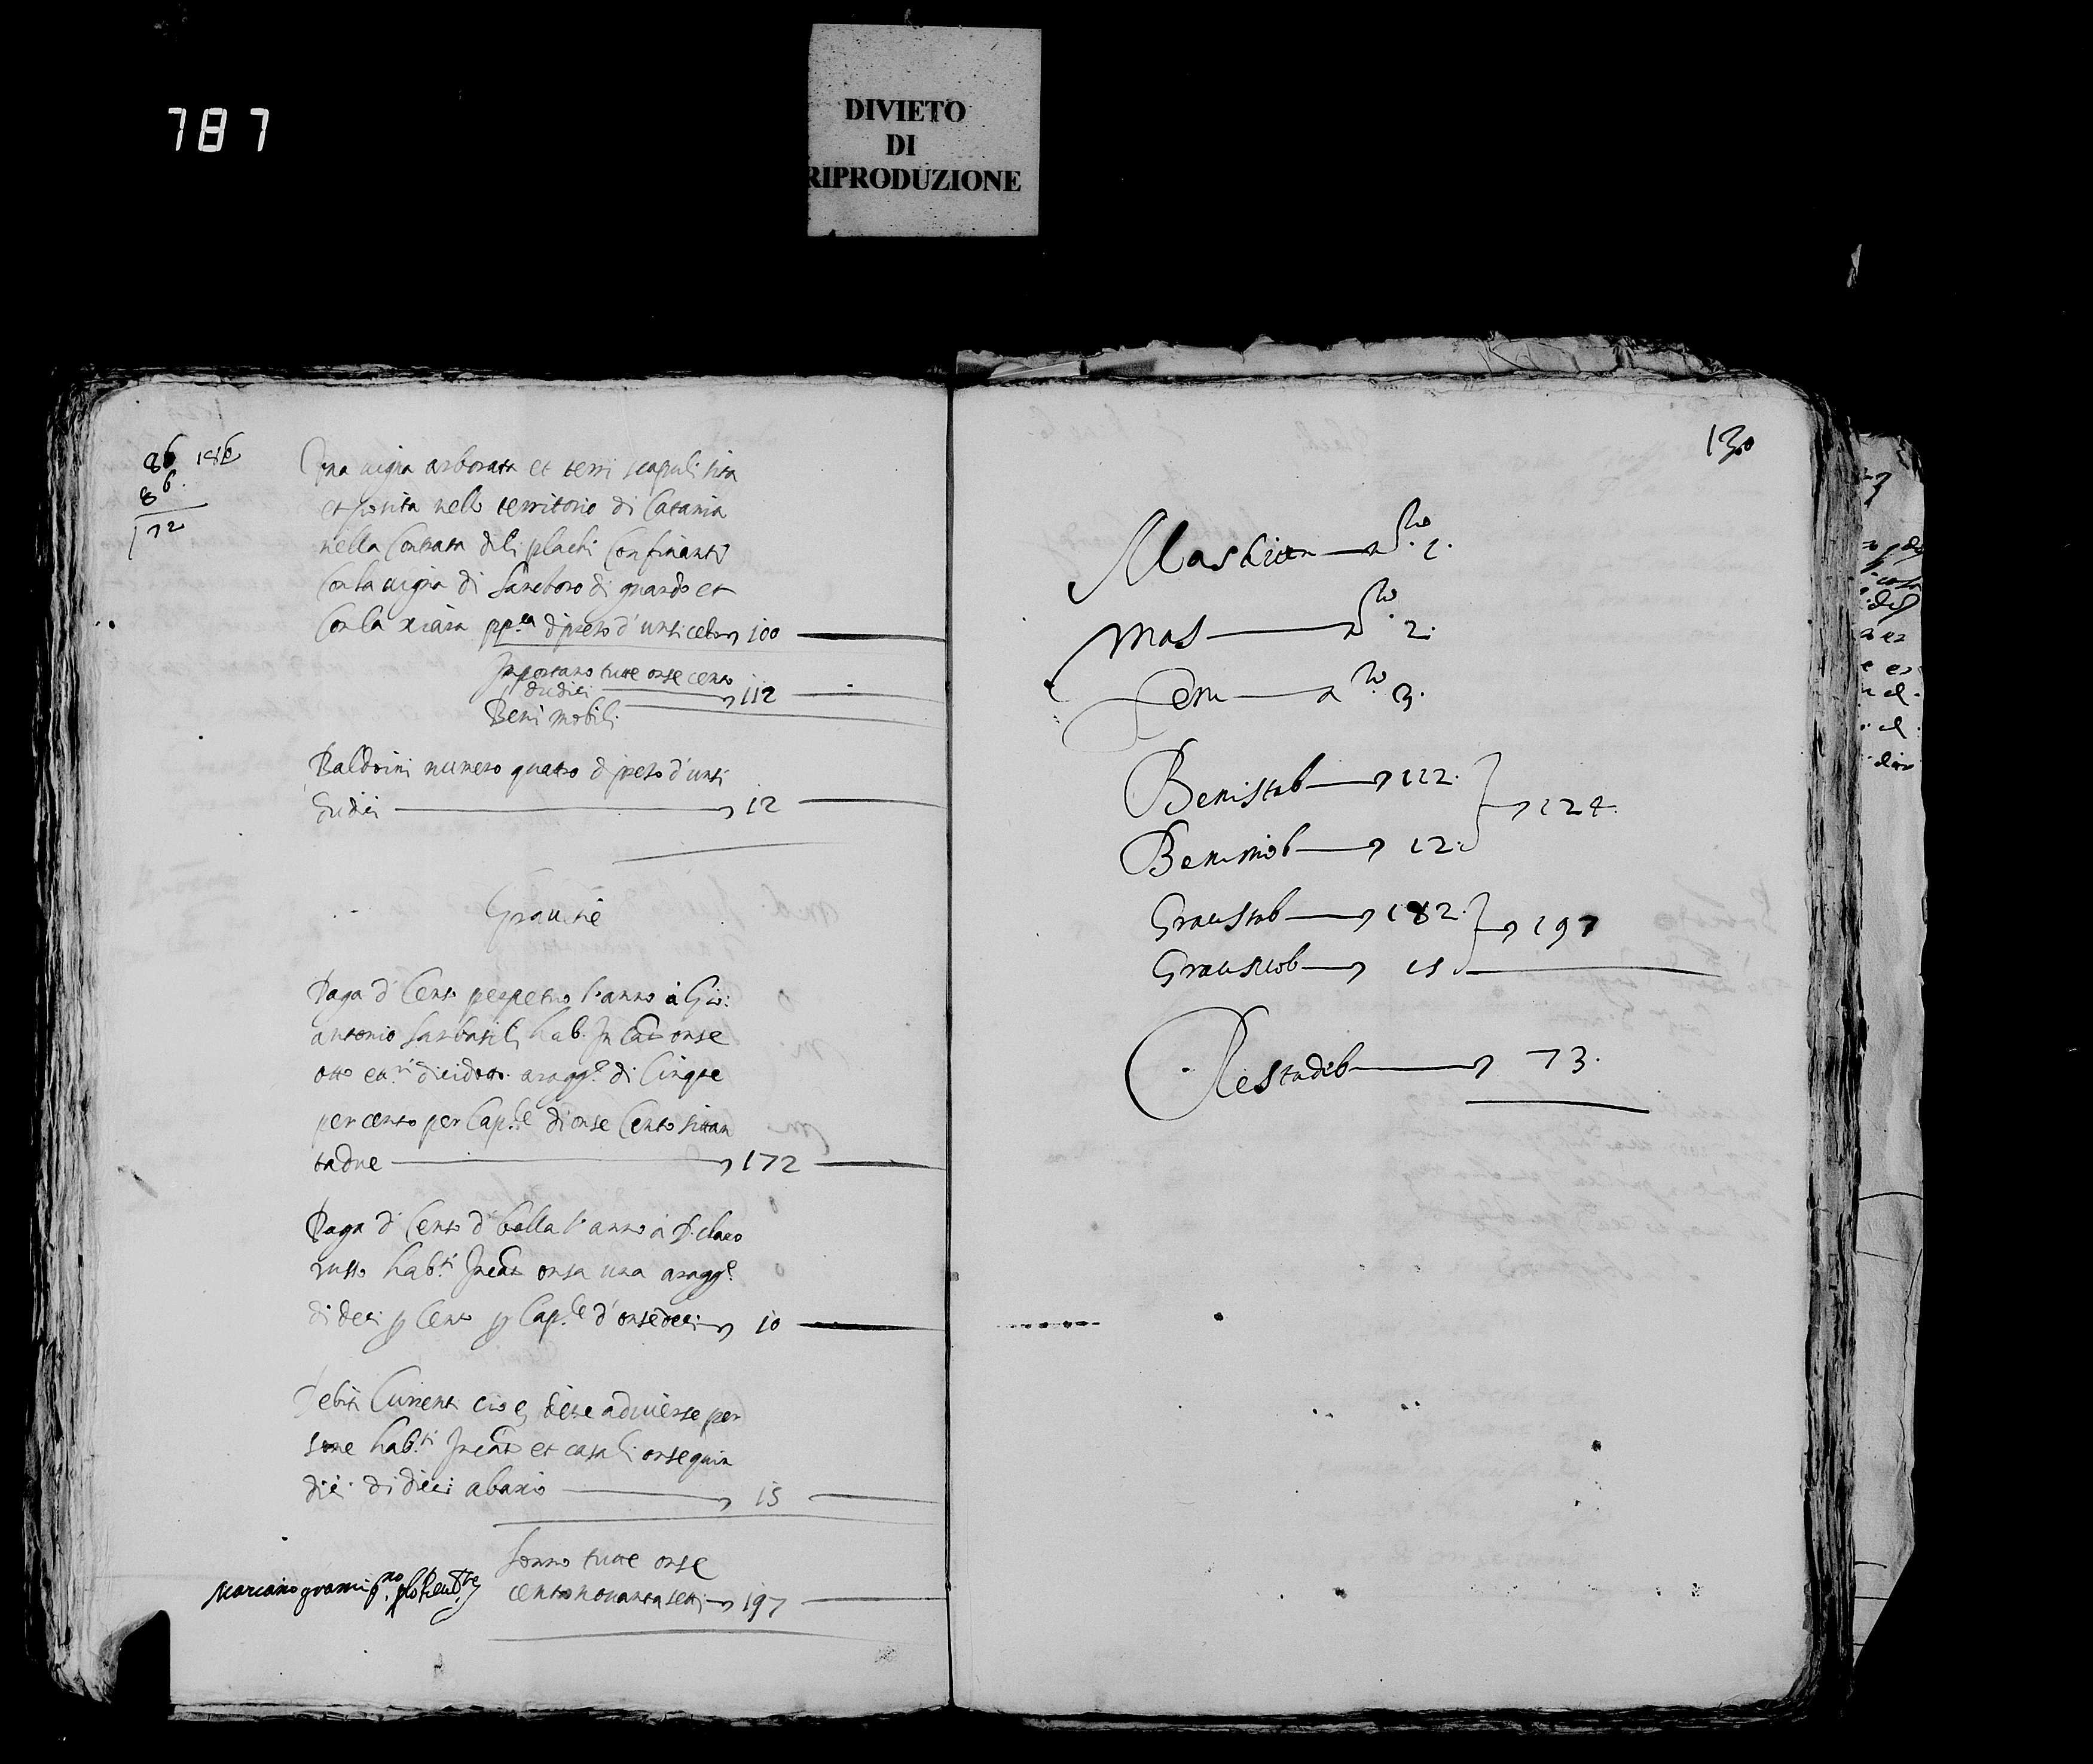 787
DIVIETO
DI
RIPRODUZIONE
86 186
86
172
Una vigna arborata et terri scapuli sita
et posita nello territorio di Catania
nella Contrata dili plachi Confinanti
Con la vigna di di guardo et
Con la xiara pp.ta di prezo d'unzi cento 100
Importano tutte onze cento
dudici 112
Beni mobili
Baldoini numero quatro di prezo d'unzi
dudici 12
Gravitie
Paga di Censo perpetuo l'anno à Gio:
antonio hab. In Cat onze
otto et tt.ri dicidotto aragg.e di Cinque
per cento per Cap.le di onze Cento sittan
tadue 172
Paga di Censo di bolla l'anno à D. claro
russo hab.ti In Cat onza una aragg.e
di deci p Cento p Cap.le d'onze deci 10
Debiti Currenti cioe deve a diverse per
sone hab.ti In Cat et casali onze quin
dici di dieci abaxio 15
Sonno tutte onze
cento novanta setti 197
130
Mas 2.
Fem 3.
Beni stab 112.
124
Beni mob 12.
Grav stab 182.
197
Grav mob 15
Resta deb 73.